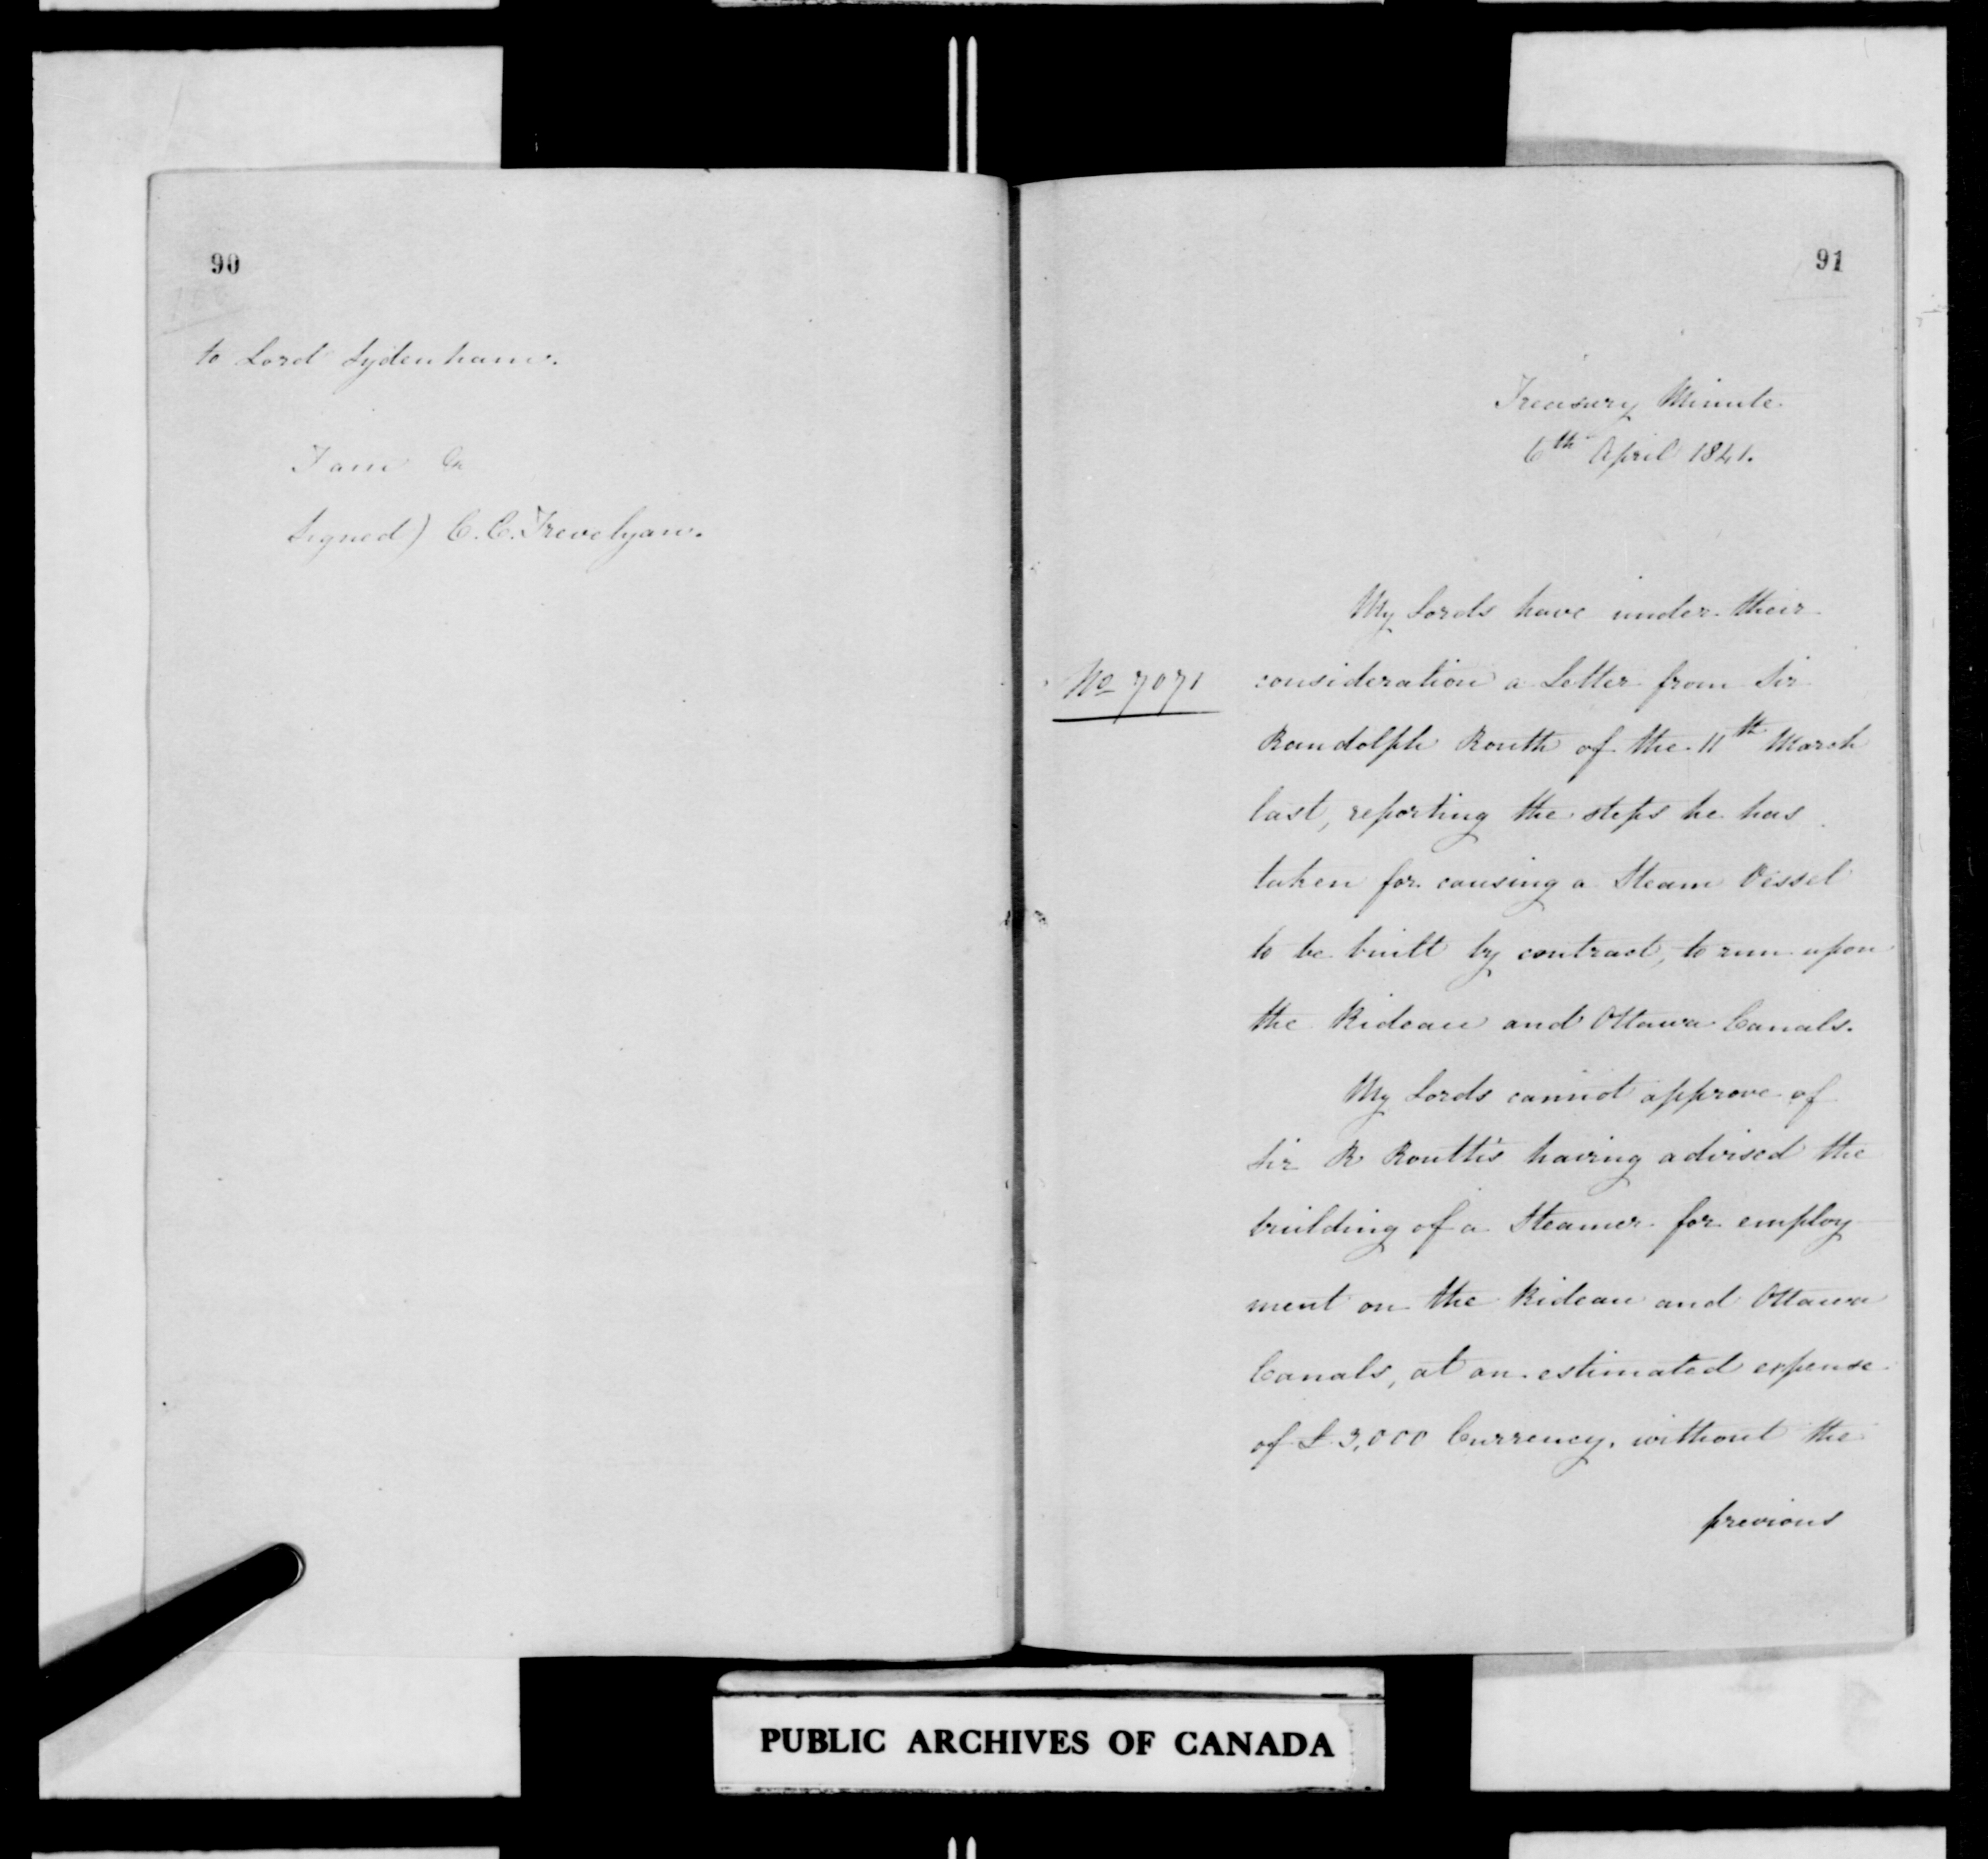 90
to Lord Sydenham.
I am &c
Signed) C. C. Trevelyan.
91
Treasury Minute
6th April 1841.
My Lords have under their
No 7071
consideration a Letter from Sir
Randolph Routh of the 11th March
last, reporting the steps he has
taken for causing a Steam Vessel
to be built by contract, to run upon
the Rideau and Ottawa Canals.
My Lords cannot approve of
Sir R Routh's having advised the
building of a Steamer for employ
ment on the Rideau and Ottawa
Canals, at an estimated expense
of £3,000 Currency, without the
previous
PUBLIC ARCHIVES OF CANADA